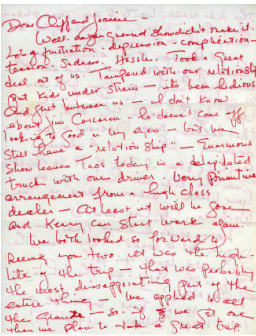 Dear Cliff and Joanne -
Well - didn't make it.
Lots of frustration - depression - complication -
tension. Sadness. Hassle. Took a great
deal out of us. Tampered with our relationship
But kids under strain - it's been tedious
And just between us - I don't know
about Jim Corcoran - he doesn't come off
looking to good in my eyes - but we
still have a "relationship" - Enormous
Show leaves Taos today in a delapidated
truck with one driver. Very primitive
arrangement from a high class
dealer - At least it will be gone -
and Kenny can start work again.
We both looked so forward to
seeing you two. It was the high-
lite of the trip - that was probably
the most disappointing part of the
entire thing - We applied to all
the Grants - So - if we get one
then we plan to take a great trip